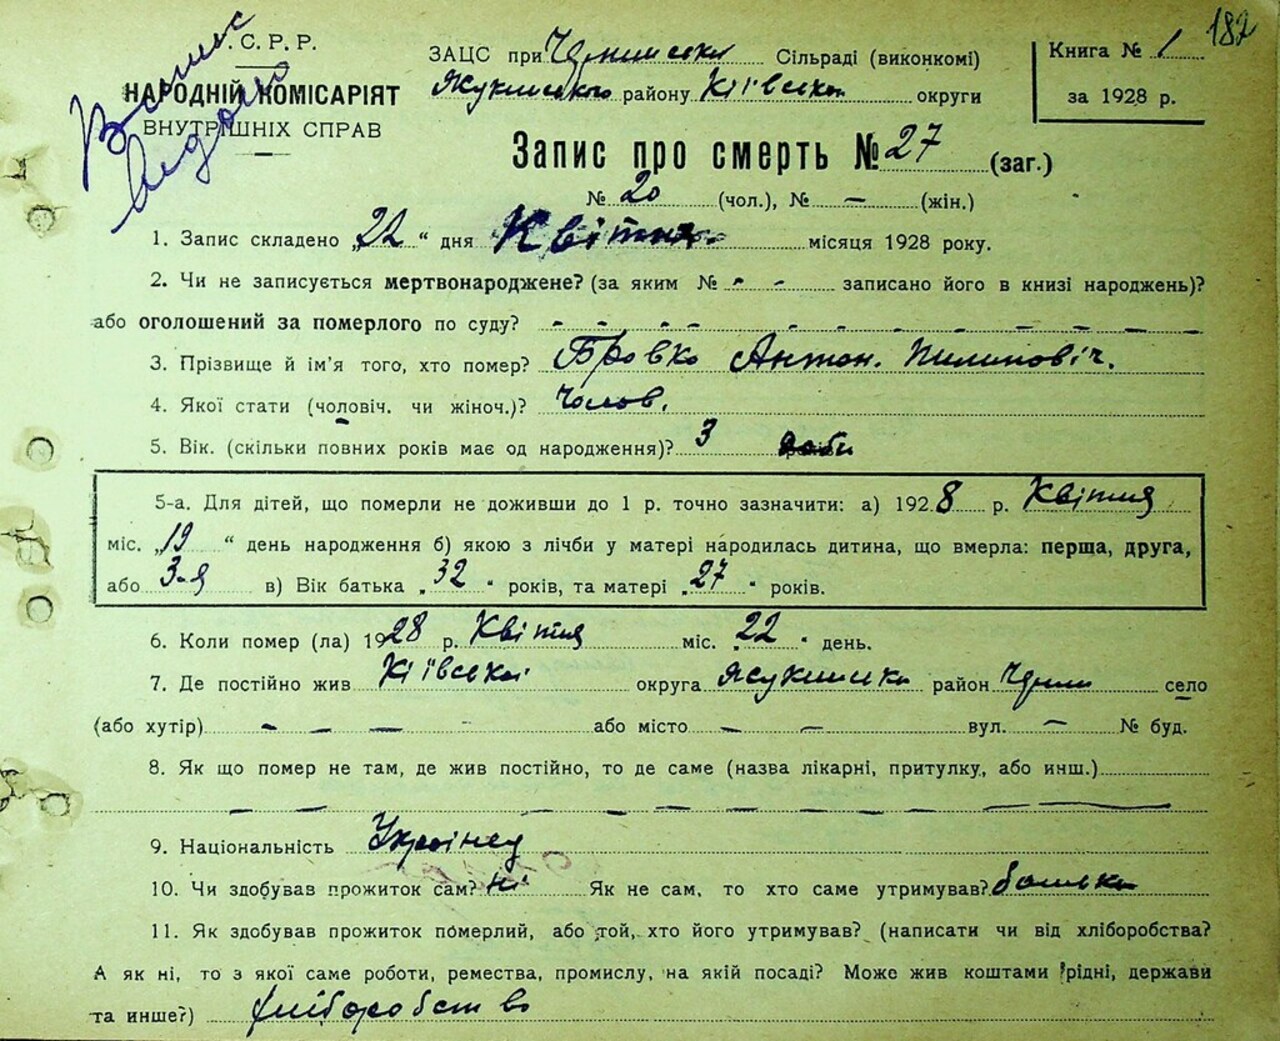 182
. С. Р. Р.
НАРОДНІЙ КОМІСАРІЯТ
ВНУТРІШНІХ СПРАВ
ЗАЦС при Сільраді (виконкомі)
району Київської округи
Книга № 1
за 1928 р.
Запис про смерть № 27 (заг.)
№ 20 (чол.), № — (жін.)
1. Запис складено „22“ дня Квітня місяця 1928 року.
2. Чи не записується мертвонароджене? (за яким № - - записано його в книзі народжень)?
або оголошений за померлого по суду? - - - - - - - - - -
3. Прізвище й ім'я того, хто помер? Бровко Антон. Пилипович.
4. Якої стати (чоловіч. чи жіноч.)? Чолов.
5. Вік. (скільки повних років має од народження)? 3 доби
5-а. Для дітей, що померли не доживши до 1 р. точно зазначити: а) 1928 р. Квітня
міс. „19“ день народження б) якою з лічби у матері народилась дитина, що вмерла: перша, друга,
або 3-я в) Вік батька „32“ років, та матері „27“ років.
6. Коли помер (ла) 1928 р. Квітня міс. „22“ день.
7. Де постійно жив Київської округа район село
(або хутір) — — — - або місто — — вул. — № буд.
8. Як що помер не там, де жив постійно, то де саме (назва лікарні, притулку, або инш.)
— — — — — — — —
9. Національність Українец
10. Чи здобував прожиток сам? ні Як не сам, то хто саме утримував? батько
11. Як здобував прожиток померлий, або той, хто його утримував? (написати чи від хліборобства?
А як ні, то з якої саме роботи, ремества, промислу, на якій посаді? Може жив коштами рідні, держави
та инше?) хліборобство